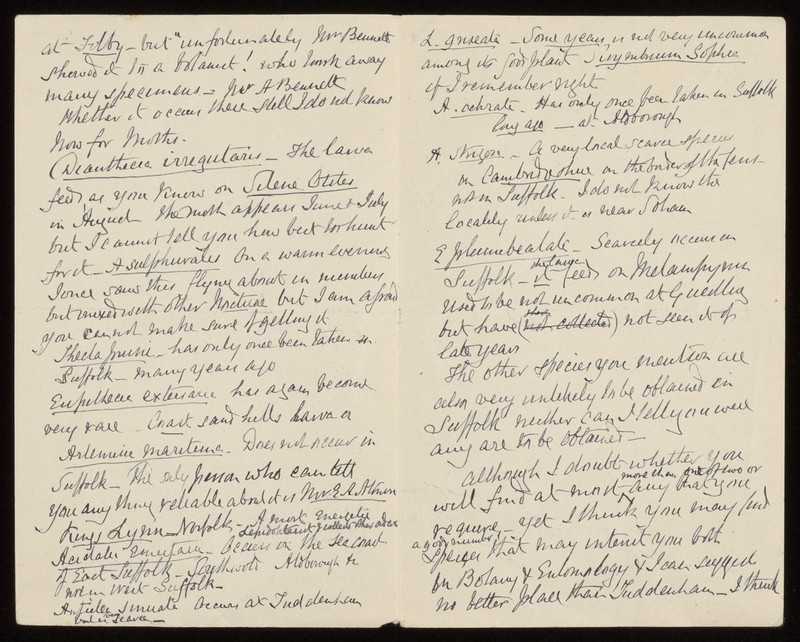 at Tilby - but "unfortunately Mr Bennett
showed it to a botanist! who took away
many specimens - Mr A Bennett
Whether it occurs there still I do not know
Now for Moths.
(Dianthecia irregularis - The larva
feed as you know on Silene Otites
in August the moth appears June & July
but I cannot tell you how best to hunt
for it - A sulphuralis On a warm evening
I once saw this flying about in numbers
but mixed with other Noctuae but I am afraid
you cannot make sure of getting it
Thecla Pruni - has only once been taken in
Suffolk - many years ago
Eupithecia extensaria has again become
very rare - Coast sand hills larva on
Artemisia maritima - Does not occur in
Suffolk - The only person who can tell
you any thing reliable about it is Mr E A Atmore
Kings Lynn - Norfolk - A most energetic
Lepidopterist & collects others also
Acidalia Emutaria - Occurs on the sea coast
of East Suffolk - Southwold Aldborough &c
not in West Suffolk -
Anticlea Sinuata occurs at Tuddenham
but is scarce -
L. griseata - Some years is not very uncommon
among its food plant Sisymbrium Sophia
if I remember right
A. ochrata - Has only once been taken in Suffolk
long ago - at Aldborough
A very local scarce species
in Cambridgeshire on the borders of the fens -
not in Suffolk. I do not know the
locality unless it is near Soham
E plumbeolata - Scarcely occurs in
Suffolk - it the larva feeds on Melampyrum
Used to be not uncommon at
but have (not collected) not seen it of
late years
The other species you mention are
also very unlikely to be obtained in
Suffolk neither can I tell you were
any are to be obtained -
Although I doubt whether you
will find at most any more than one of two or
that you
require - yet I think you may find
a good number of
species that may interest you both
in Botany & Entomology & I can suggest
no better place than Tuddenham - I think